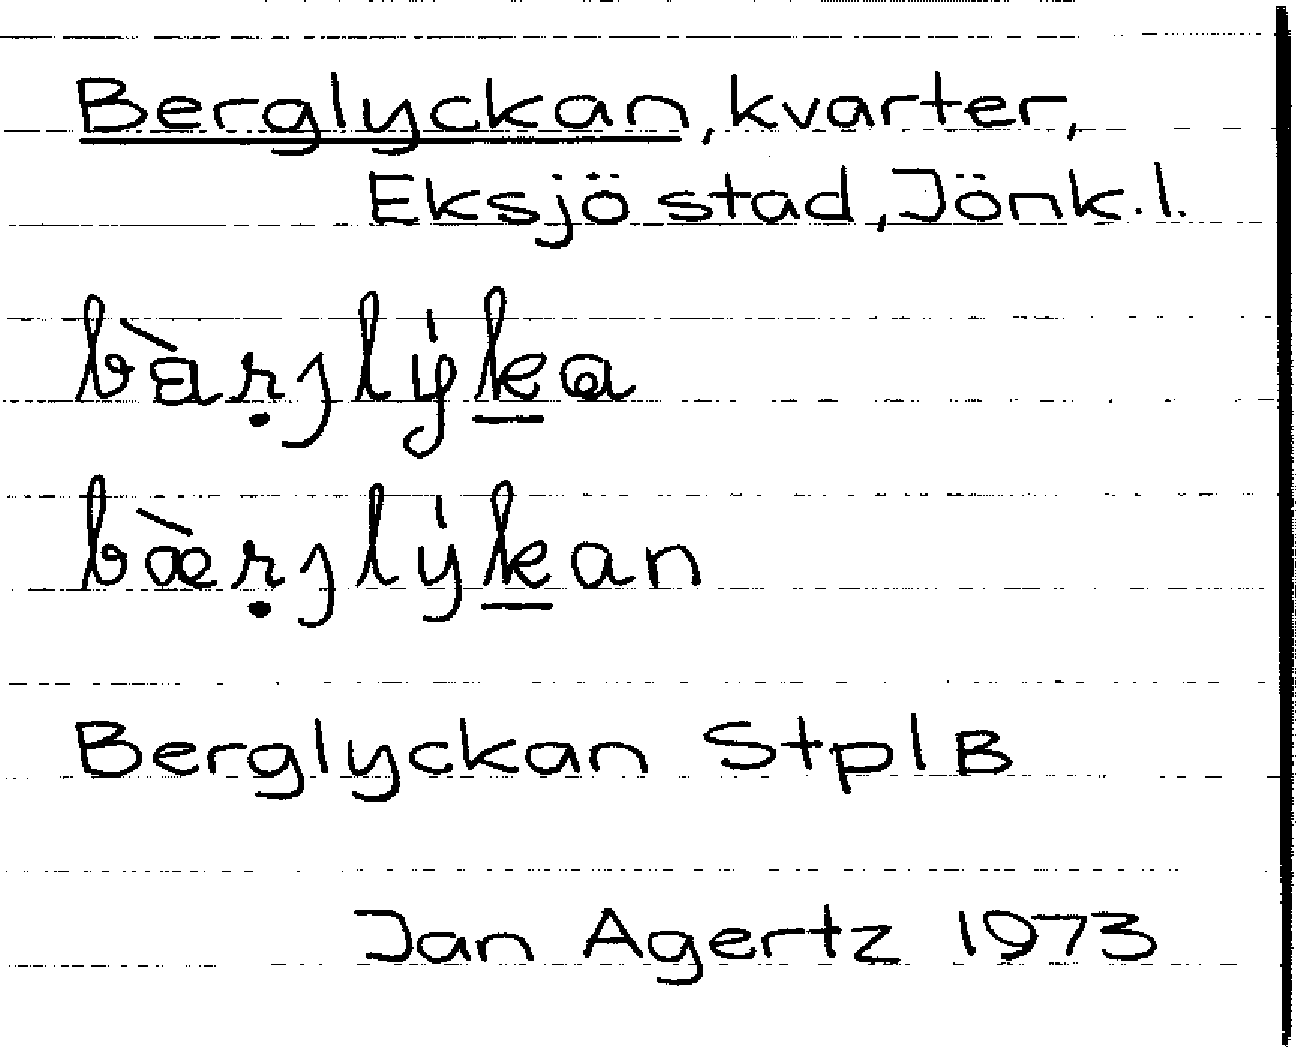 Berglyckan, kvarter,
Eksjö stad, Jönk. l.
bærjlyka
bærjlykan
Berglyckan Stpl B
Jan Agertz 1973